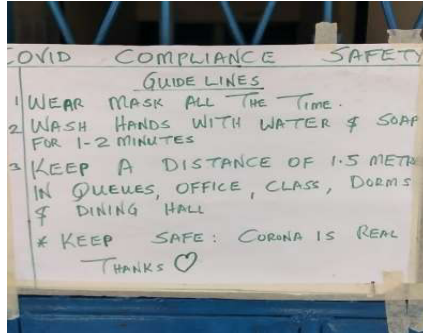 COVID COMPLIANCE SAFETY
GUIDE LINES
1 WEAR MASK ALL THE TIME.
2 WASH HANDS WITH WATER & SOAP
FOR 1-2 MINUTES
3 KEEP A DISTANCE OF 1.5 METR
IN QUEUES, OFFICE, CLASS, DORMS
& DINING HALL
* KEEP SAFE: CORONA IS REAL
THANKS ♡